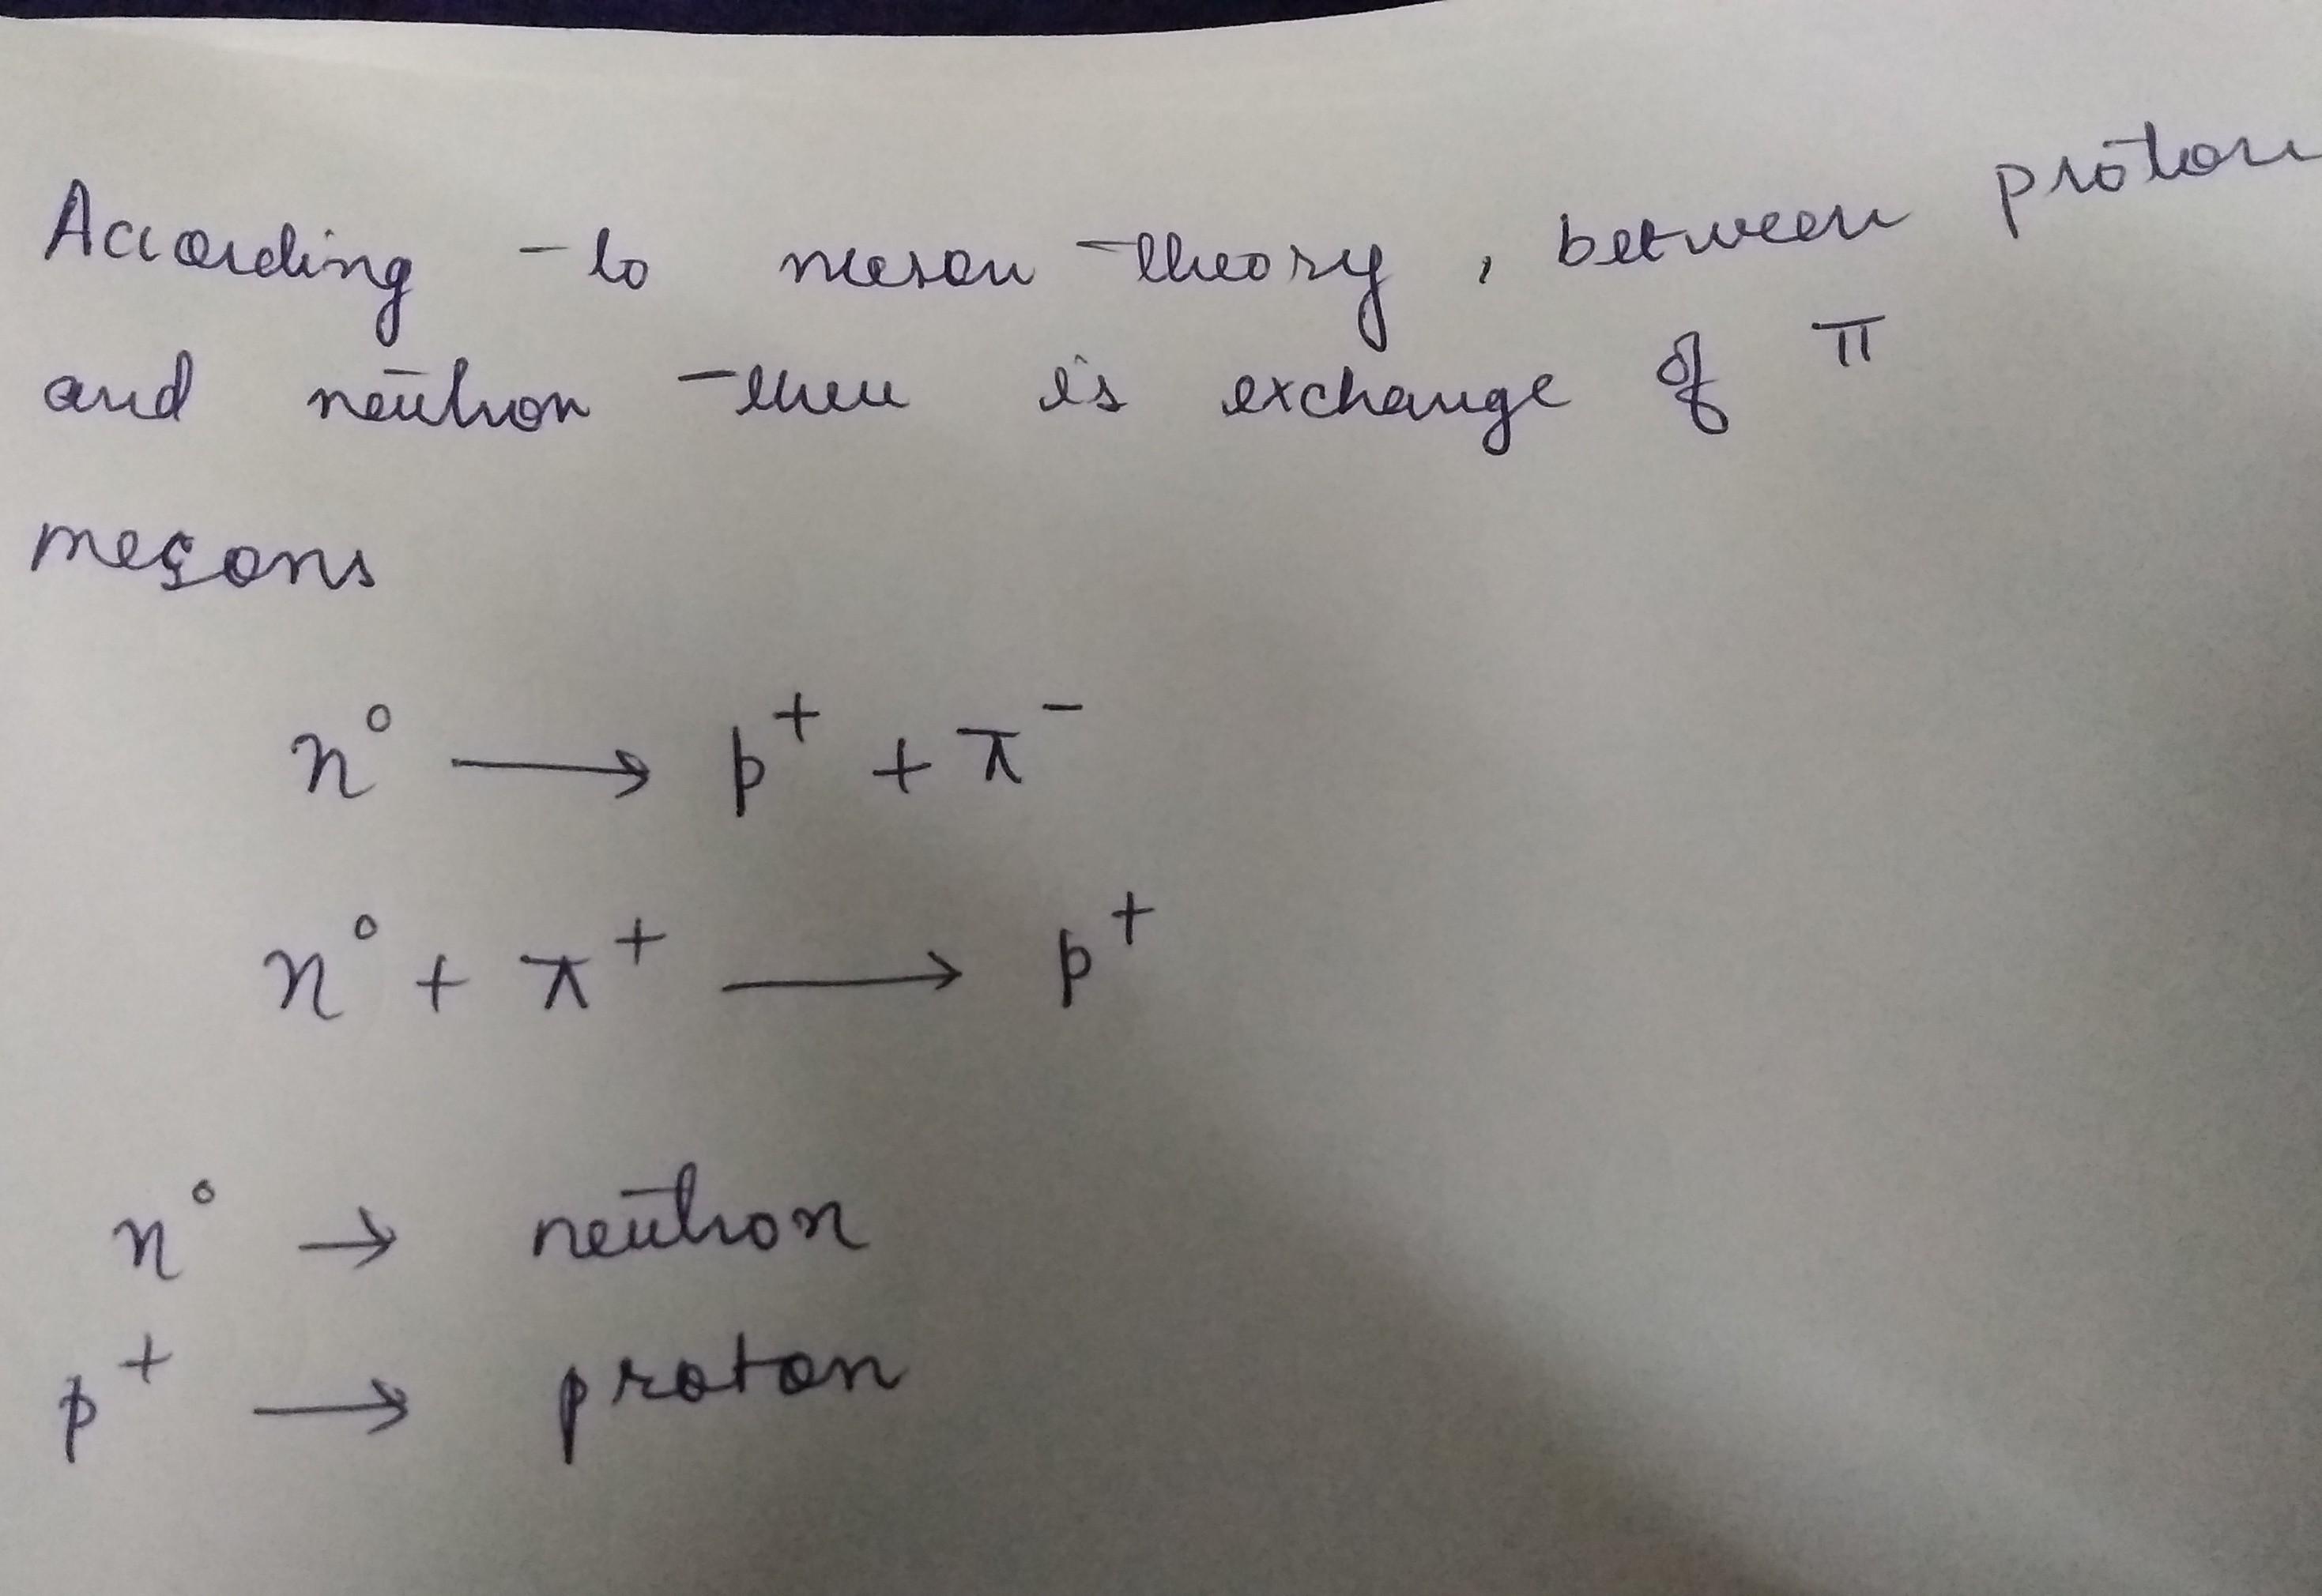 According to meson theory, between proton
and neutron there is exchange of π
mesons
n° ⟶ p⁺ + π⁻
n° + π⁺ ⟶ p⁺
n° → neutron
p⁺ ⟶ proton